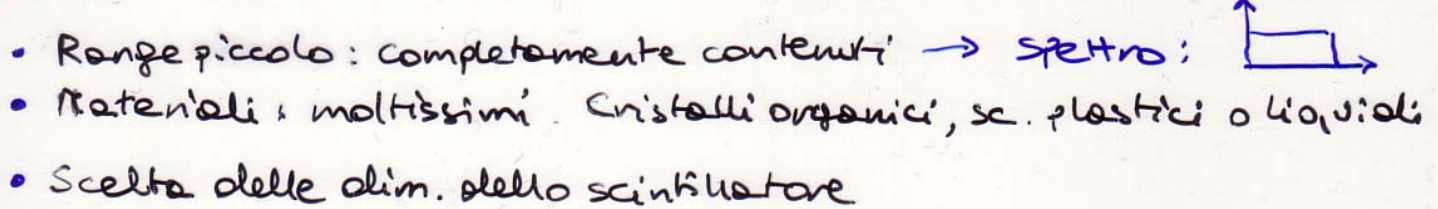 • Range piccolo: completamente contenuti → spettro:
• Materiali: moltissimi. Cristalli organici, sc. plastici o liquidi
• Scelta delle dim. dello scintillatore